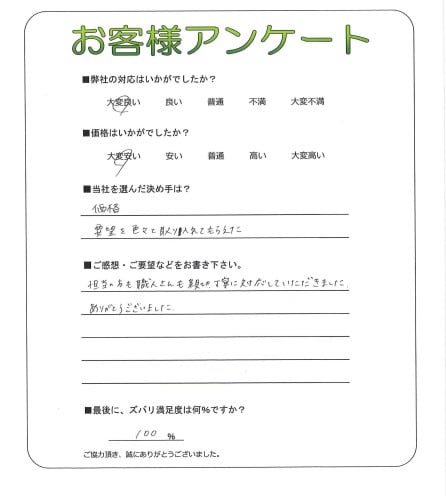 お客様アンケート
■弊社の対応はいかがでしたか?
大変良い 良い 普通 不満 大変不満
■価格はいかがでしたか?
大変安い 安い 普通 高い 大変高い
■当社を選んだ決め手は?
価格
要望を色々と取り入れてもらえた
■ご感想・ご要望などをお書き下さい。
担当の方も職人さんも親切丁寧に対応していただきました
ありがとうございました
■最後に、ズバリ満足度は何%ですか?
100 %
ご協力頂き、誠にありがとうございました。